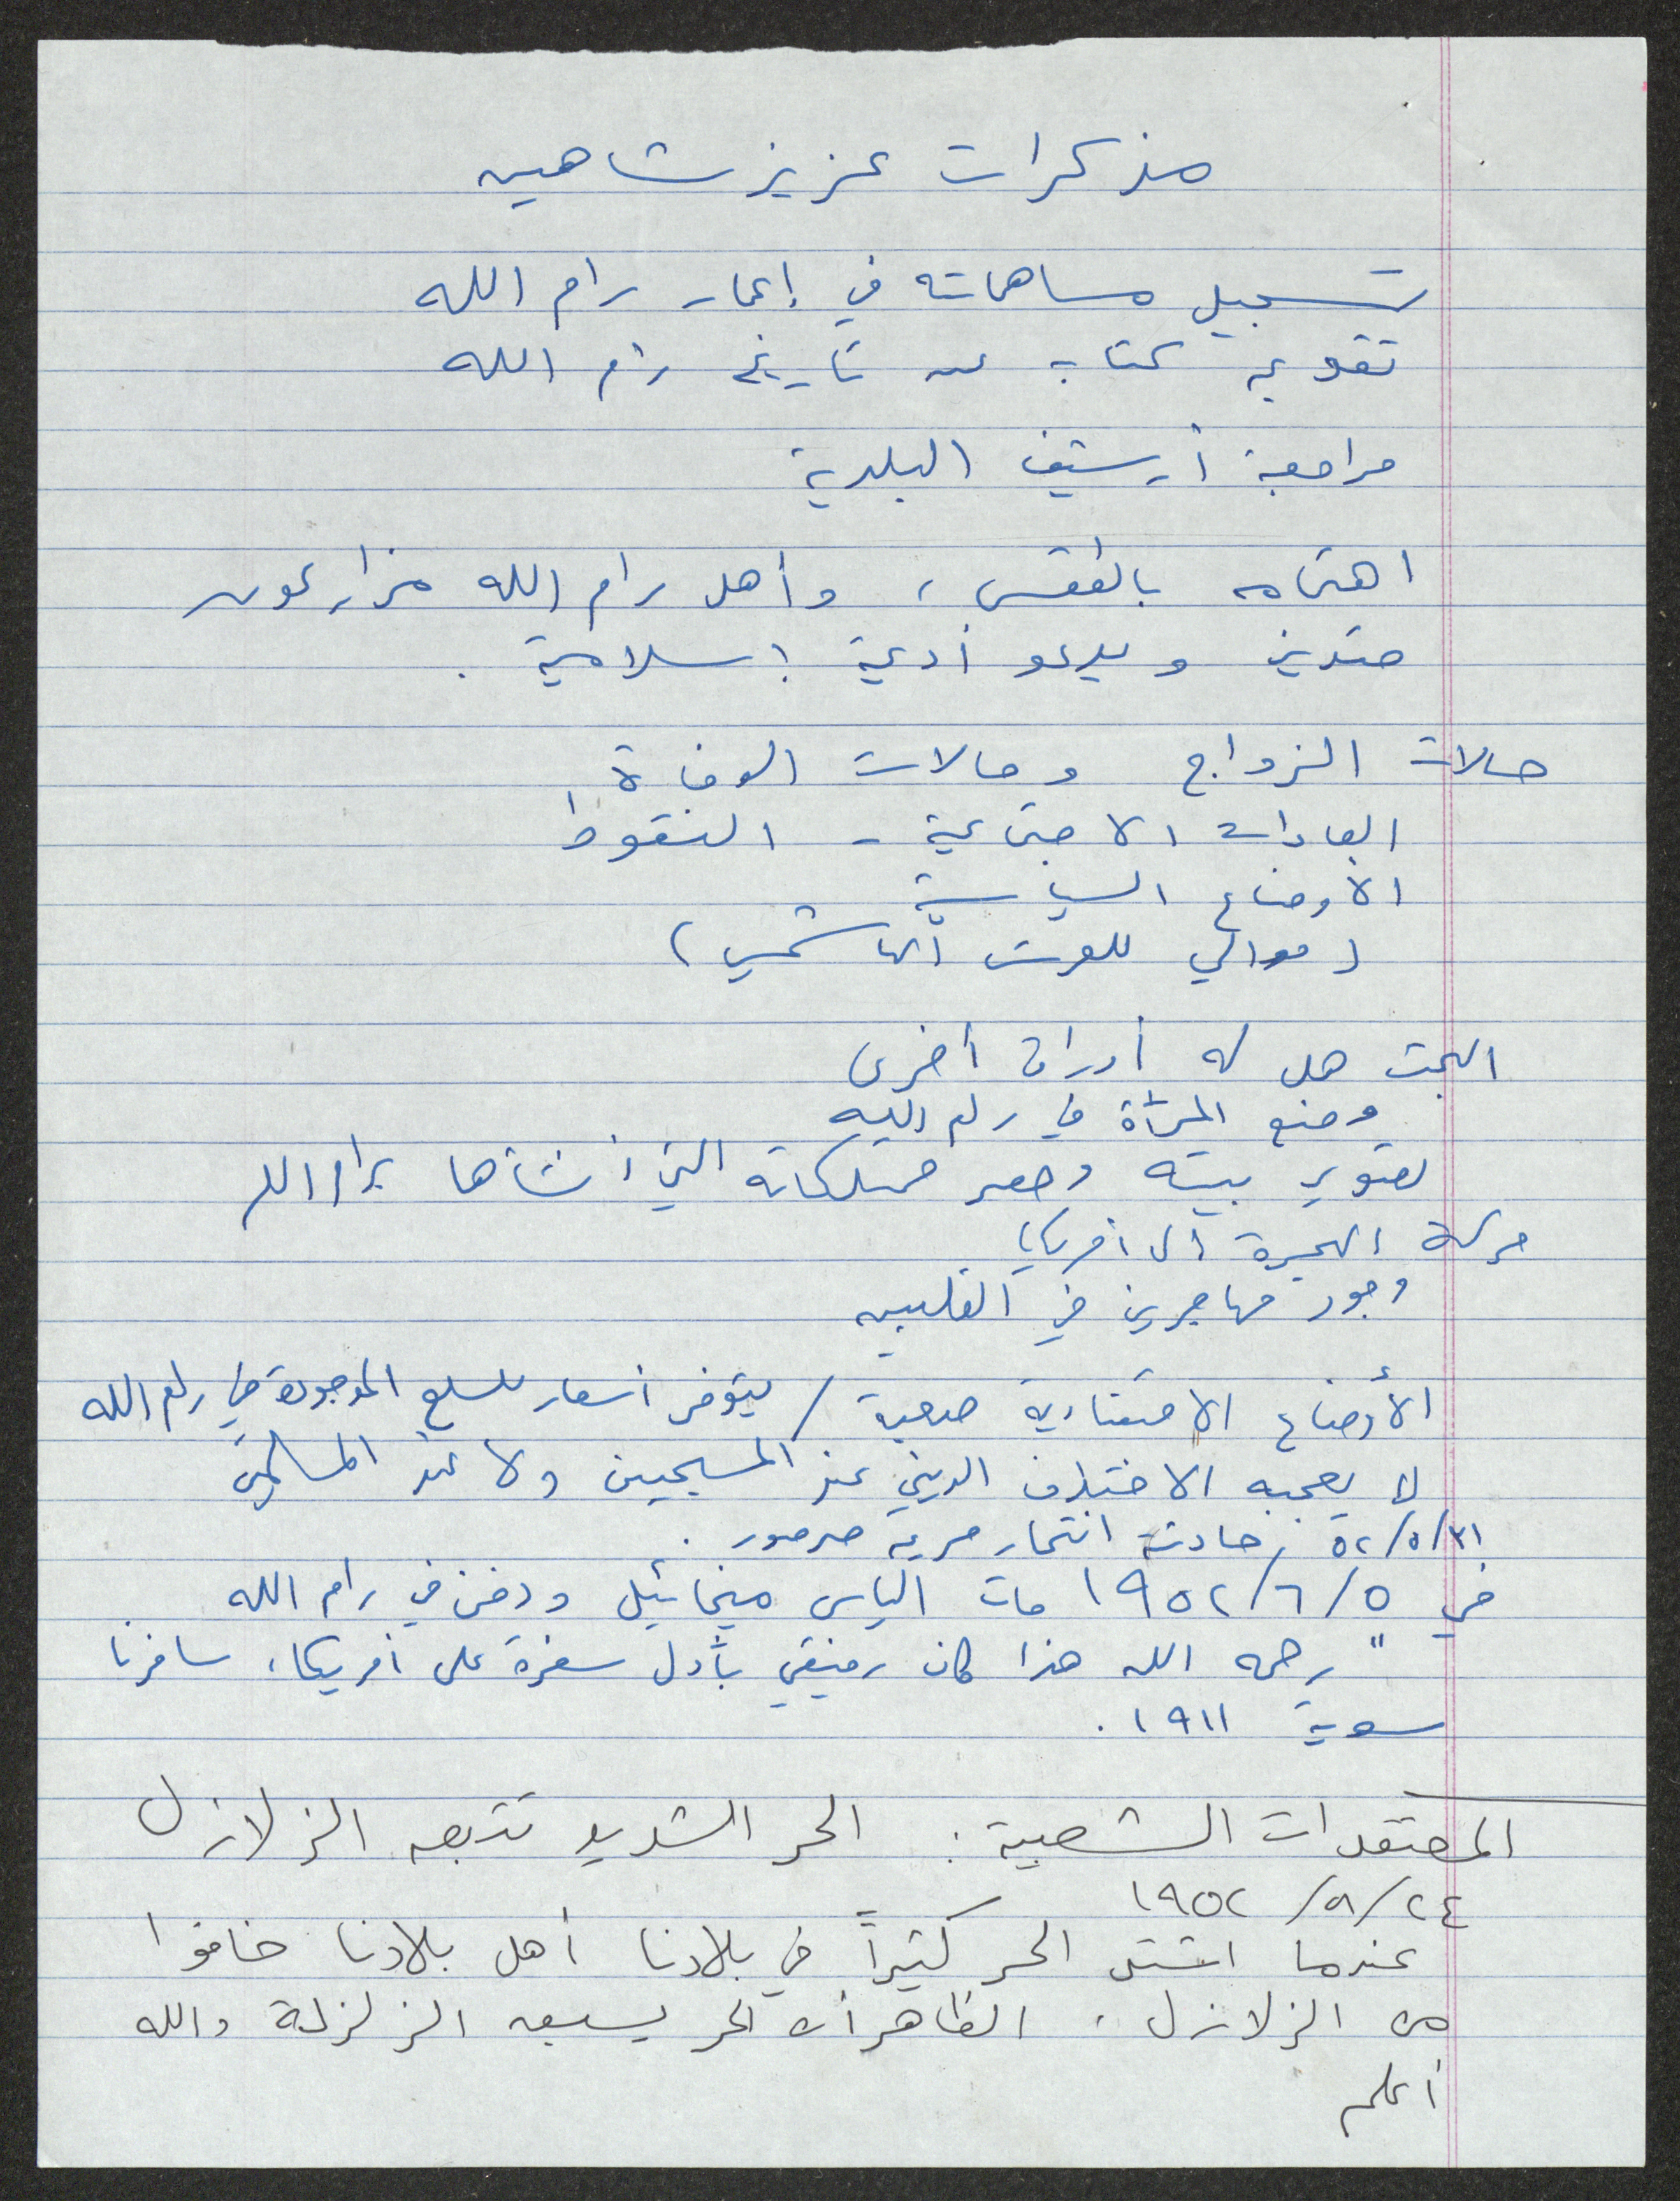 مذكرات عزيز شاهين
تسجيل مساهماته في إعمار رام الله
تقويم كتاب عن تاريخ رام الله
مراجعة أرشيف البلدية
اهتمامه بالطقس، وأهل رام الله مزارعون
متدين ويدعو أدعية إسلامية.
حالات الزواج وحالات الوفاة
العادات الاجتماعية - النقوط
الأوضاع السياسية
(موالي للعرش الهاشمي)
البحث هل له أوراق أخرى
وضع المرأة في رام الله
تصوير بيته وحصر ممتلكاته التي أنشأها برام الله
حركة الهجرة الى أمريكا
وجود مهاجرين في الفلبين
الأوضاع الاقتصادية صعبة / يتوفر أسعار للسلع الموجودة في رام الله
لا يعجبه الاختلاف الديني عند المسيحيين ولا عند المسلمين
٣١/٥/٥٢ حادثة انتحار مريم صرصور.
في ٥/٦/١٩٥٢ مات الياس ميخائيل ودفن في رام الله
" رحمه الله هذا كان رفيقي بأول سفرة على أمريكا، سافرنا
سوية ١٩١١.
المعتقدات الشعبية: الحر الشديد تتبعه الزلازل
٢٤/٨/١٩٥٢
عندما اشتد الحر كثيراً في بلادنا أهل بلادنا خافوا
من الزلازل، الظاهر أن الحر يسبق الزلزلة والله
أعلم